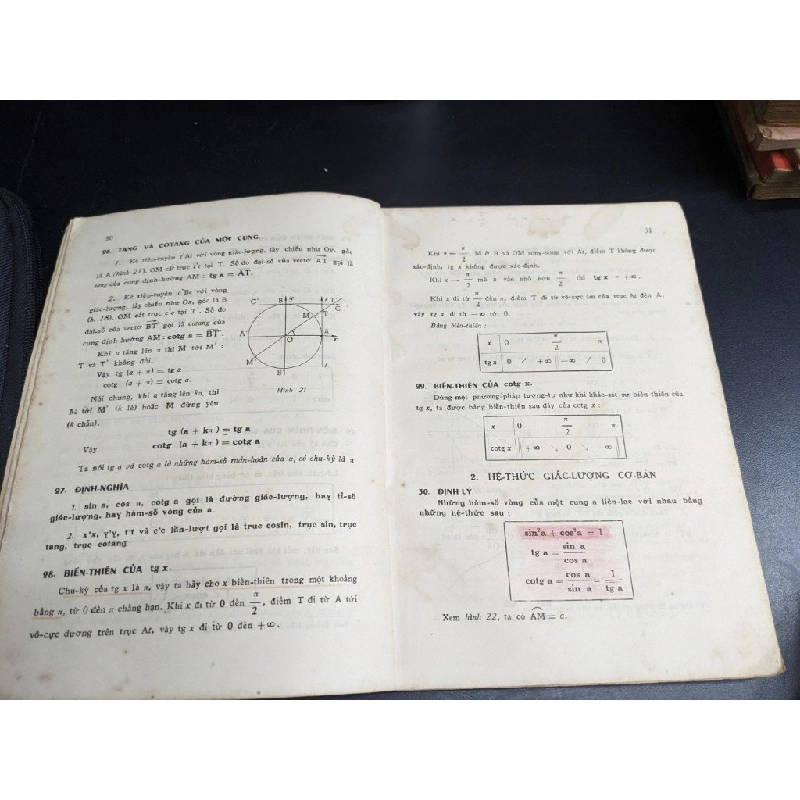 30
26. TANG VÀ COTANG CỦA MỘT CUNG.
1. Kẻ tiếp-tuyến t'At với vòng giác-lượng, lấy chiều như Oy, gốc
là A (hình 21). OM cắt trục t't tại T. Số đo đại-số của vectơ AT gọi là
tang của cung định-hướng AM : tg a = AT.
2. Kẻ tiếp-tuyến với vòng
giác-lượng, lấy chiều như Ox, gốc là B
OM cắt trục tại T'. Số đo
đại-số của vectơ BT' gọi là cotang của
cung định-hướng AM : cotg a = BT'.
Khi a tăng lên π thì M tới M' ;
T và T' không đổi.
Vậy tg (a + π) = tg a
cotg (a + π) = cotg a.
Nói chung, khi a tăng lên kπ, thì
M tới M' (k lẻ) hoặc M đứng yên
(k chẵn).
Hình 21
tg (a + kπ) = tg a
Vậy
cotg (a + kπ) = cotg a
Ta nói tg a và cotg a là những hàm-số tuần-hoàn của a, có chu-kỳ là π
27. ĐỊNH-NGHĨA
1. sin a, cos a, cotg a gọi là đường giác-lượng, hay tỉ-số
giác-lượng, hay hàm-số vòng của a.
2. x'x, y'y, t't và lần-lượt gọi là trục cosin, trục sin, trục
tang, trục cotang
28. BIẾN-THIÊN CỦA tg x.
Chu-kỳ của tg x là π, vậy ta hãy cho x biến-thiên trong một khoảng
bằng π, từ 0 đến π chẳng hạn. Khi x đi từ 0 đến π/2, điểm T đi từ A tới
vô-cực dương trên trục At, vậy tg x đi từ 0 đến +∞.
31
Khi x = π/2, M ở B và OM song-song với At, điểm T không được
xác-định, tg x không được xác-định.
Khi x → π/2 mà x vẫn nhỏ hơn π/2 thì tg x → +∞.
Khi x đi từ π/2 đến π, điểm T đi từ vô-cực âm của trục At đến A,
vậy tg x đi từ −∞ tới 0.
Bảng biến-thiên :
x 0 π/2 π
tg x 0 / +∞ || −∞ / 0
29. BIẾN-THIÊN CỦA cotg x.
Dùng một phương-pháp tương-tự như khi khảo-sát sự biến-thiên của
tg x, ta được bảng biến-thiên sau đây của cotg x :
x 0 π/2 π
cotg x || +∞ \ 0 \ −∞ ||
2. HỆ-THỨC GIÁC-LƯỢNG CƠ-BẢN
30. ĐỊNH LÝ
Những hàm-số vòng của một cung a liên-lạc với nhau bằng
những hệ-thức sau :
sin²a + cos²a = 1
tg a = sin a / cos a
cotg a = cos a / sin a = 1 / tg a
Xem hình 22, ta có AM = a.